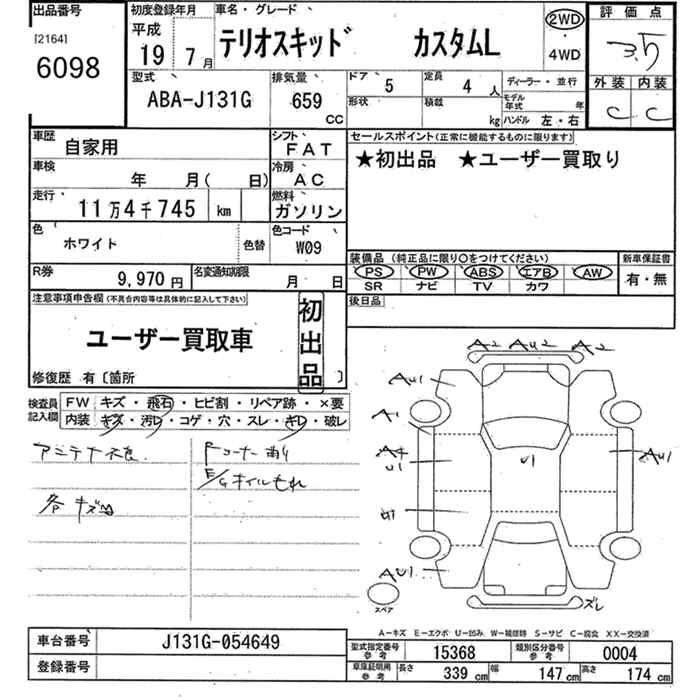 出品番号
[2164]
6098
初度登録年月
平成
19 7月
車名・グレード
テリオスキッド カスタムL
2WD
・
4WD
評価点
3.5
外装 内装
C C
型式
ABA-J131G
排気量
659
CC
ドア 5
定員 4人
形状
積載 kg
ディーラー・並行
モデル年式 年
ハンドル 左・右
車歴
自家用
シフト
FAT
車検
年 月( 日)
冷房
AC
走行
11万4千745 km
燃料
ガソリン
色
ホワイト
色替
色コード
W09
セールスポイント(正常に機能するものに限ります)
★初出品 ★ユーザー買取り
装備品 (純正品に限り○をつけてください)
PS PW ABS エアB AW
SR ナビ TV カワ
新車保証書
有・無
R券
9,970円
名変通知期限
月 日
後日品
注意事項申告欄(不具合内容等は具体的に記入して下さい)
ユーザー買取車
初出品
修復歴 有〔箇所 〕
検査員記入欄
FW キズ・飛石・ヒビ割・リペア跡・×要
内装 キズ・汚レ・コゲ・穴・スレ・キレ・破レ
アンテナ不良
各キズ凹
Fコーナー有り
E/Gオイルもれ
A2 AU2 A2
AU1
A1
A4
U1
U1
AU1
AU1
ズレ
スペア
A-キズ E-エクボ U-凹み W-補修跡 S-サビ C-腐食 XX-交換済
車台番号
J131G-054649
登録番号
型式指定番号
参考
15368
類別区分番号
参考
0004
車庫証明用
参考
長さ 339 cm
幅 147 cm
高さ 174 cm